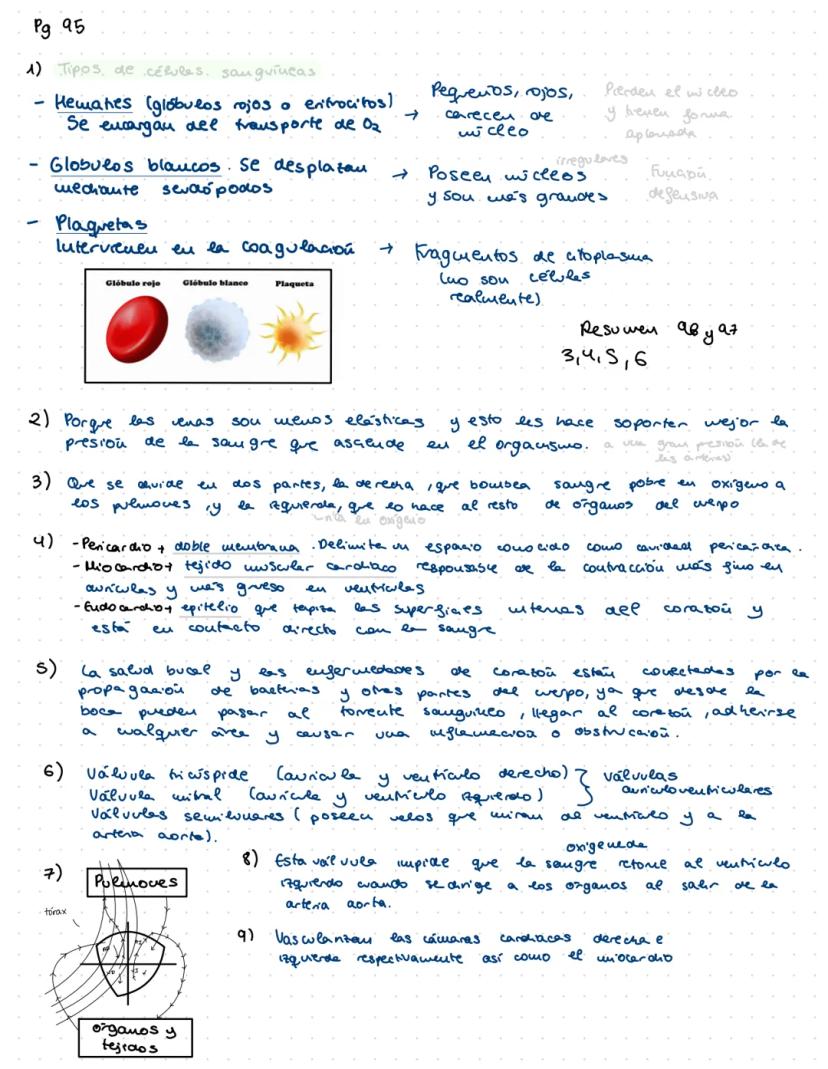 Pg 95
1) Tipos de células sanguíneas
- Hematíes (glóbulos rojos o eritrocitos) → Pequeños, rojos, Pierden el núcleo
Se encargan del transporte de O2 carecen de y tienen forma
núcleo aplanada
- Globulos blancos. Se desplazan → Poseen núcleos irregulares Función
mediante seudópodos y son más grandes defensiva
- Plaquetas
Intervienen en la coagulación → Fragmentos de citoplasma
(no son células
realmente)
Glóbulo rojo Glóbulo blanco Plaqueta
Resumen 96 y 97
3,4,5,6
2) Porque las venas son menos elásticas y esto les hace soportar mejor la
presión de la sangre que asciende en el organismo. a una gran presión (la de
las arterias)
3) Que se divide en dos partes, la derecha, que bombea sangre pobre en oxígeno a
los pulmones, y la izquierda, que lo hace al resto de órganos del cuerpo
rica en oxígeno
4) - Pericardio → doble membrana. Delimita un espacio conocido como cavidad pericárdica.
- Miocardio → tejido muscular cardíaco responsable de la contracción más fino en
aurículas y más grueso en ventrículos
- Endocardio → epitelio que tapiza las superficies internas del corazón y
está en contacto directo con la sangre
5) La salud bucal y las enfermedades de corazón están conectadas por la
propagación de bacterias y otras partes del cuerpo, ya que desde la
boca pueden pasar al torrente sanguíneo, llegar al corazón, adherirse
a cualquier área y causar una inflamación o obstrucción.
6) Válvula tricúspide (aurícula y ventrículo derecho) } válvulas
Válvula mitral (aurícula y ventrículo izquierdo) auriculoventriculares
Válvulas semilunares (poseen velos que miran al ventrículo y a la
arteria aorta).
7) Pulmones
tórax
órganos y
tejidos
8) Esta válvula impide que la sangre oxigenada retorne al ventrículo
izquierdo cuando se dirige a los órganos al salir de la
arteria aorta.
9) Vascularizan las cámaras cardíacas derecha e
izquierda respectivamente así como el miocardio